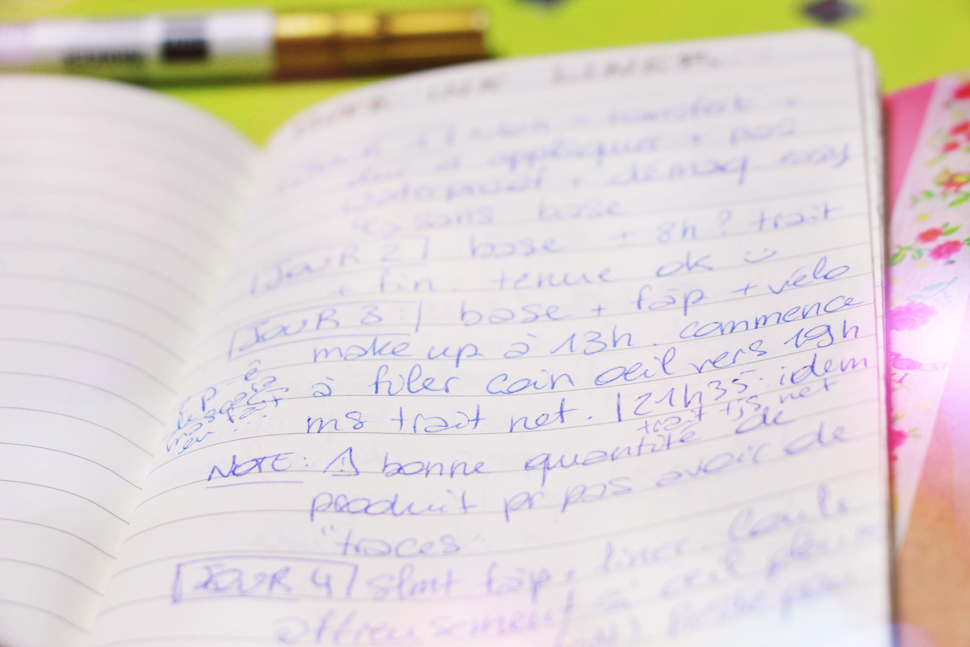 INK LINER
+ transfert +
à appliquer + pas
waterproof + démaq easy
sans base
JOUR 2 | base + 8h ? trait
+ fin. tenue ok
JOUR 3 : | base + fàp + vélo
make up à 13h. commence
à filer coin oeil vers 19h
ms trait net. | 21h35 : idem
trait tjs net
NOTE : bonne quantité de
produit pr pas avoir de
"traces"
JOUR 4 | slmt fàp + liner. Coule
affreusement si oeil pleure